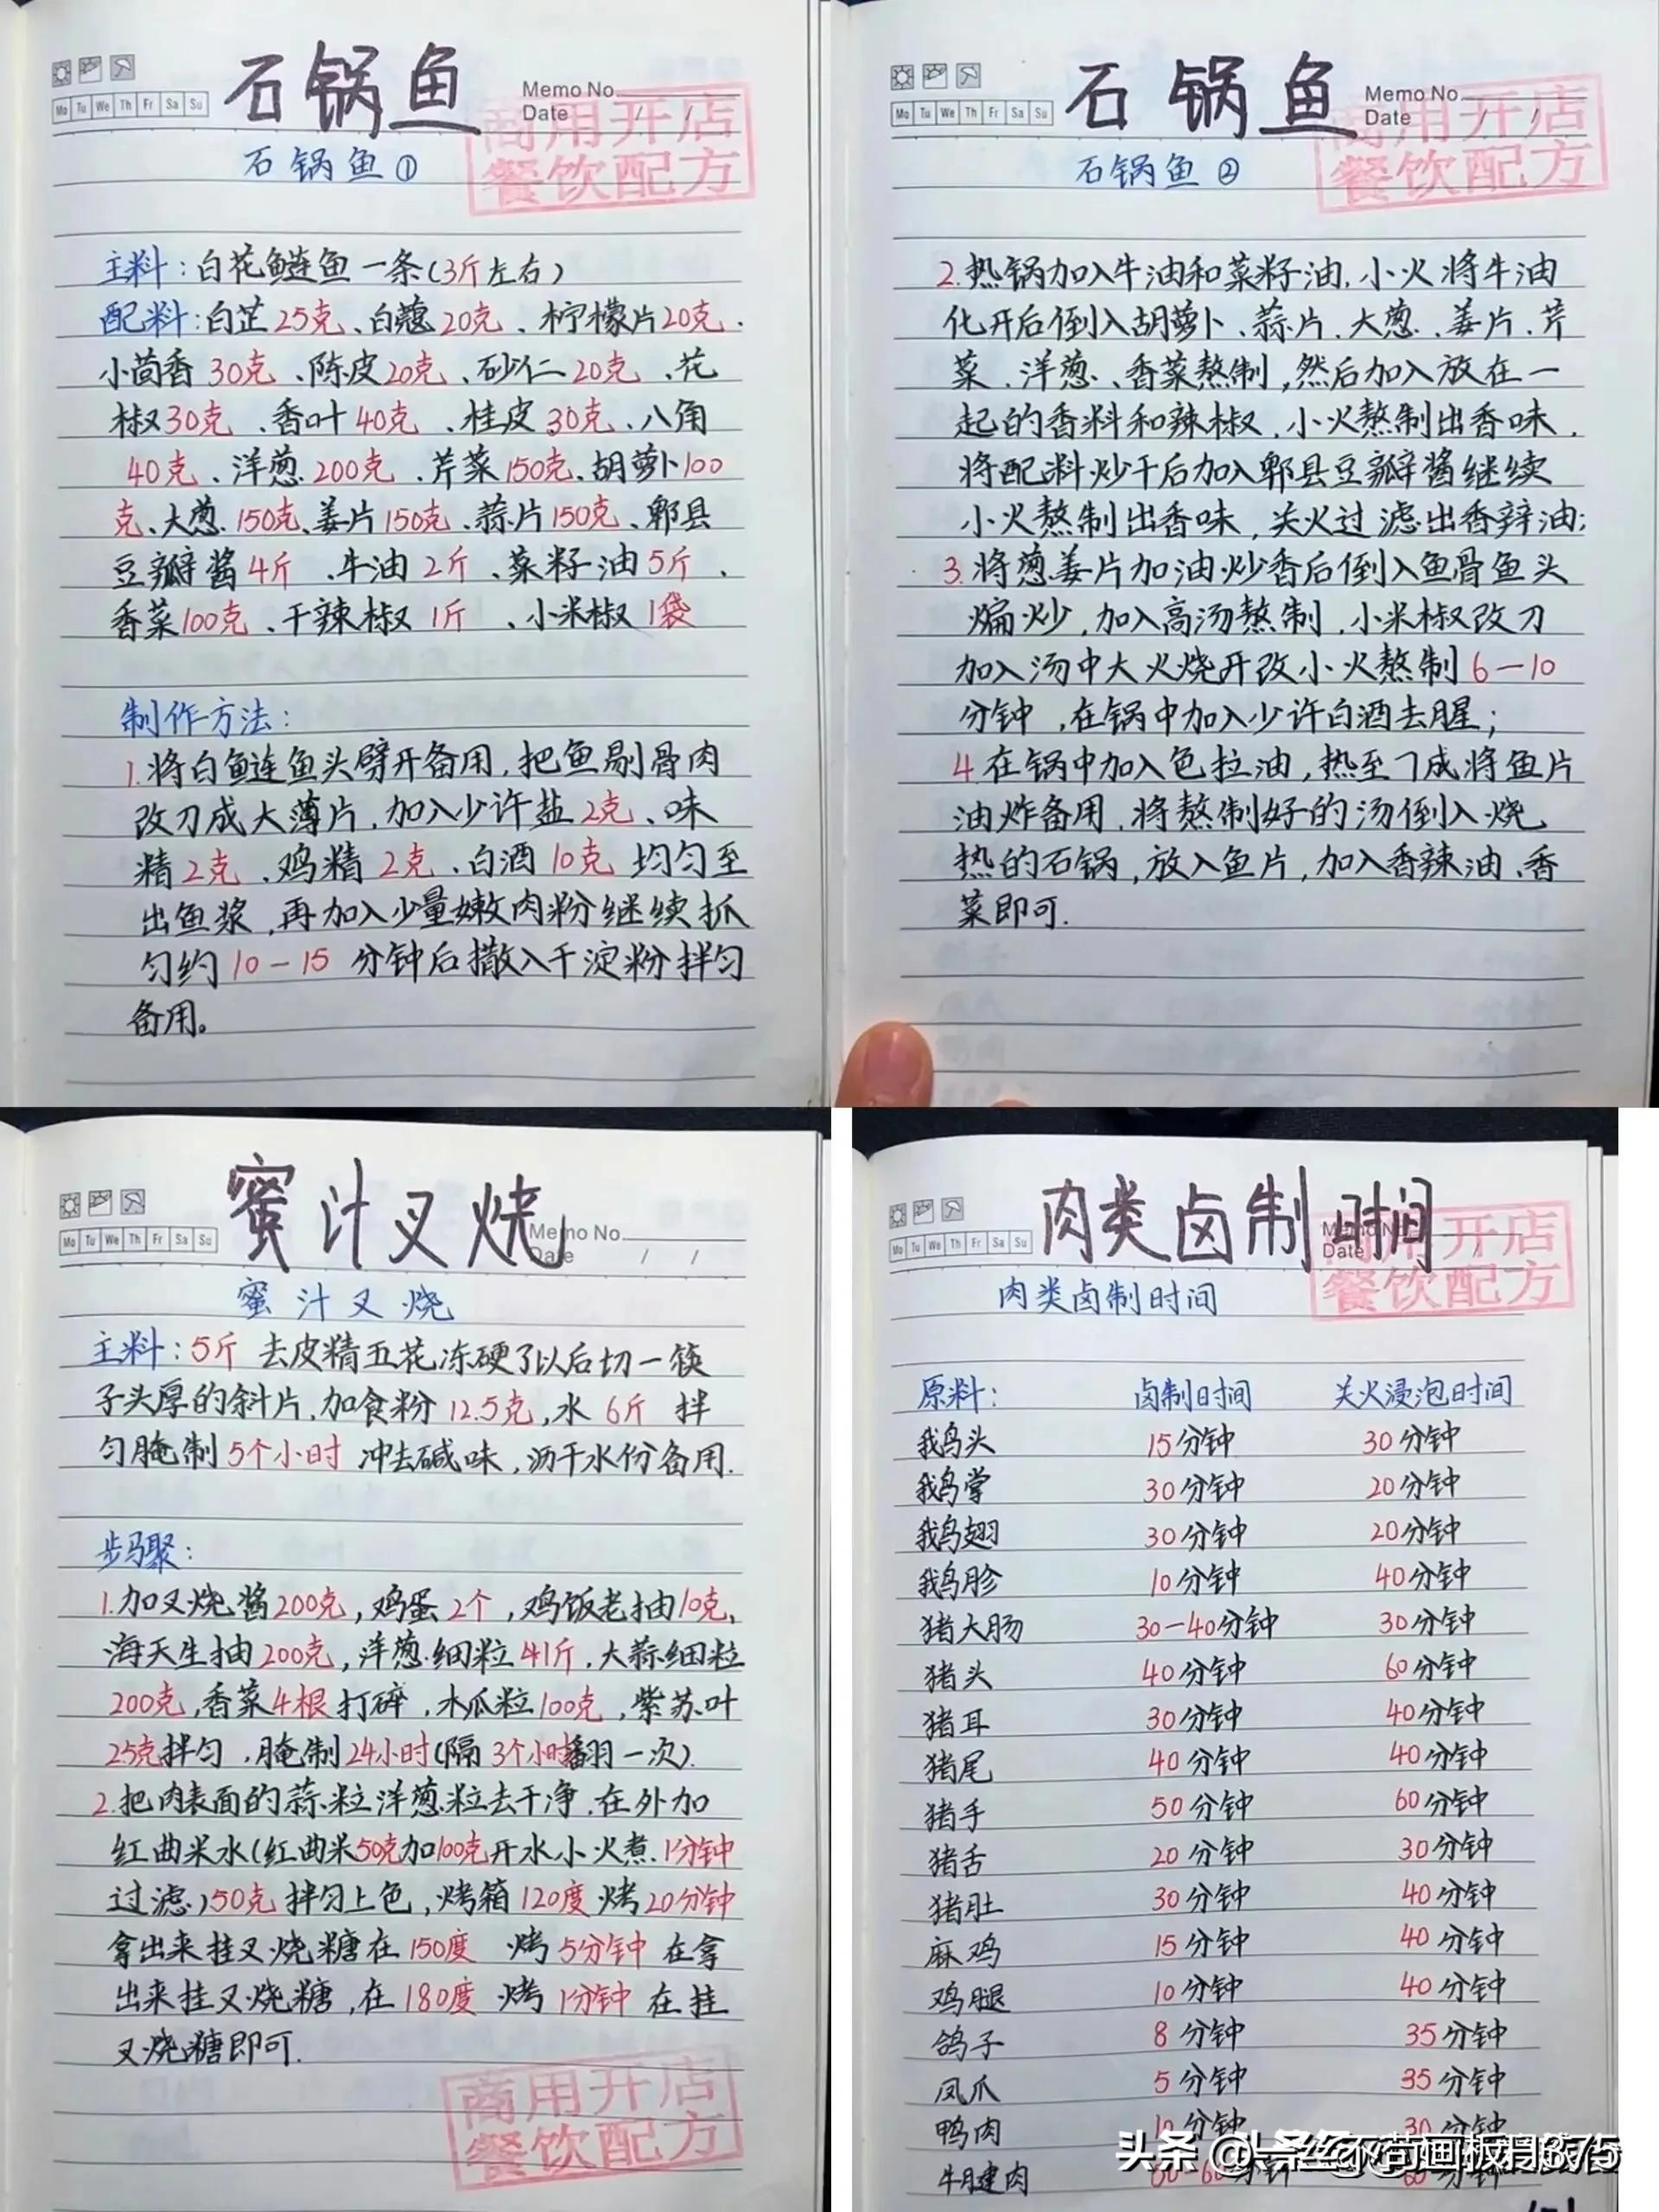 石锅鱼
Memo No.
Mo Tu We Th Fr Sa Su
Date / /
商用开店
餐饮配方
石锅鱼①
主料:白花鲢鱼一条(3斤左右)
配料:白芷25克、白蔻20克、柠檬片20克、
小茴香30克、陈皮20克、砂仁20克、花
椒30克、香叶40克、桂皮30克、八角
40克、洋葱200克、芹菜150克、胡萝卜100
克、大葱150克、姜片150克、蒜片150克、郫县
豆瓣酱4斤、牛油2斤、菜籽油5斤、
香菜100克、干辣椒1斤、小米椒1袋
制作方法:
1.将白鲢鱼头劈开备用,把鱼剔骨肉
改刀成大薄片,加入少许盐2克、味
精2克、鸡精2克、白酒10克均匀至
出鱼浆,再加入少量嫩肉粉继续抓
匀约10-15分钟后撒入干淀粉拌匀
备用。
石锅鱼
Memo No.
Mo Tu We Th Fr Sa Su
Date / /
商用开店
餐饮配方
石锅鱼②
2.热锅加入牛油和菜籽油,小火将牛油
化开后倒入胡萝卜、蒜片、大葱、姜片、芹
菜、洋葱、香菜熬制,然后加入放在一
起的香料和辣椒,小火熬制出香味,
将配料炒干后加入郫县豆瓣酱继续
小火熬制出香味,关火过滤出香辣油;
3.将葱姜片加油炒香后倒入鱼骨鱼头
煸炒,加入高汤熬制,小米椒改刀
加入汤中大火烧开改小火熬制6-10
分钟,在锅中加入少许白酒去腥;
4在锅中加入色拉油,热至7成将鱼片
油炸备用,将熬制好的汤倒入烧
热的石锅,放入鱼片,加入香辣油、香
菜即可.
蜜汁叉烧
Memo No.
Mo Tu We Th Fr Sa Su
Date / /
蜜汁叉烧
主料:5斤去皮精五花冻硬了以后切一筷
子头厚的斜片,加食粉12.5克,水6斤拌
匀腌制5个小时冲去碱味,沥干水份备用.
步骤:
1.加叉烧酱200克,鸡蛋2个,鸡饭老抽10克,
海天生抽200克,洋葱细粒4斤,大蒜细粒
200克,香菜4根打碎,木瓜粒100克,紫苏叶
25克拌匀,腌制24小时(隔3个小时翻一次).
2.把肉表面的蒜粒洋葱粒去干净,在外加
红曲米水(红曲米50克加100克开水小火煮1分钟
过滤)50克拌匀上色,烤箱120度烤20分钟
拿出来挂叉烧糖在150度烤5分钟在拿
出来挂叉烧糖,在180度烤1分钟在挂
叉烧糖即可.
商用开店
餐饮配方
肉类卤制时间
Memo No.
Mo Tu We Th Fr Sa Su
Date /
商用开店
餐饮配方
肉类卤制时间
原料: 卤制时间 关火浸泡时间
鹅头 15分钟 30分钟
鹅掌 30分钟 20分钟
鹅翅 30分钟 20分钟
鹅胗 10分钟 40分钟
猪大肠 30-40分钟 30分钟
猪头 40分钟 60分钟
猪耳 30分钟 40分钟
猪尾 40分钟 40分钟
猪手 50分钟 60分钟
猪舌 20分钟 30分钟
猪肚 30分钟 40分钟
麻鸡 15分钟 40分钟
鸡腿 10分钟 40分钟
鸽子 8分钟 35分钟
凤爪 5分钟 35分钟
鸭肉 10分钟 30分钟
牛腱肉
头条